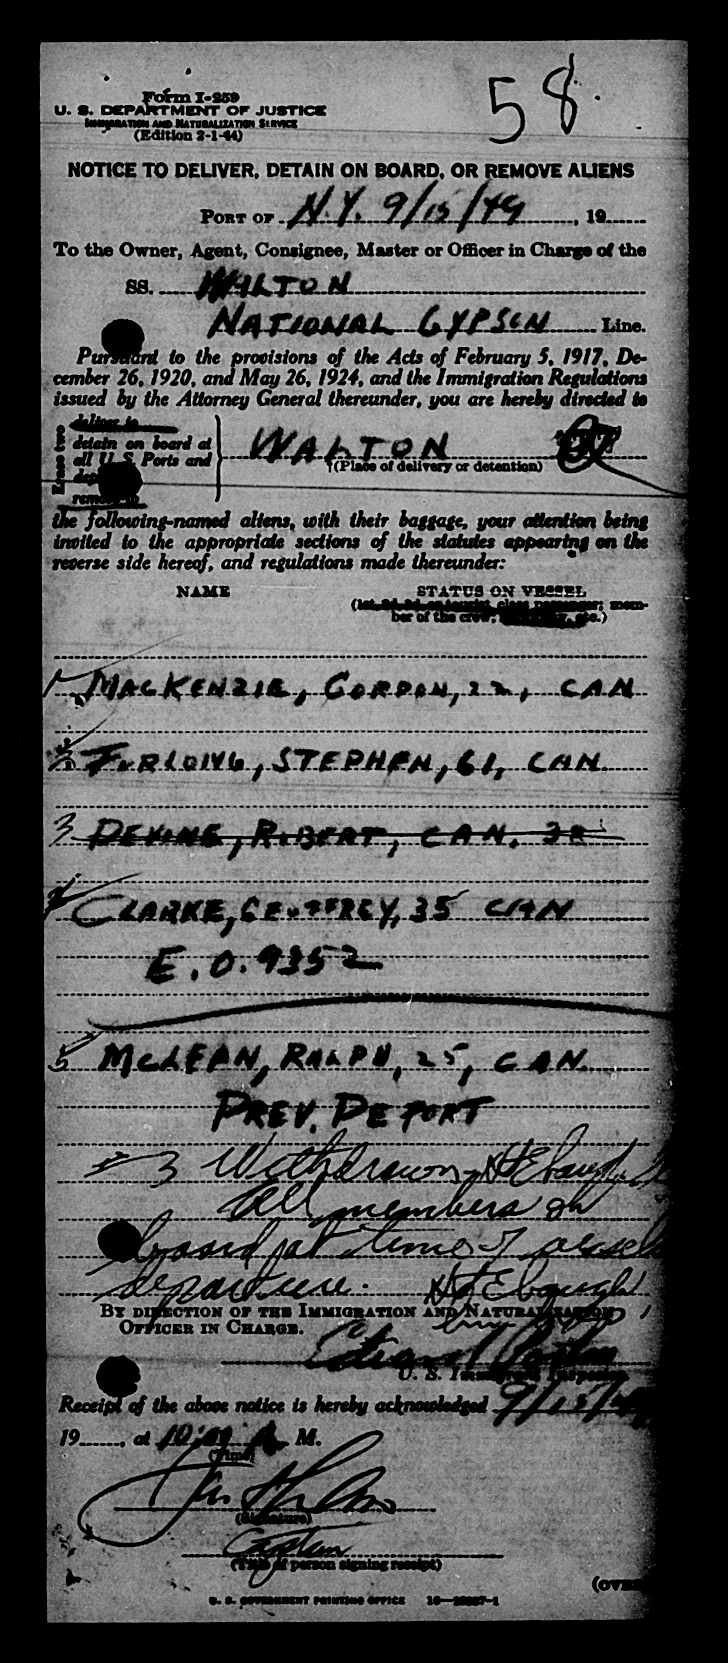 58
Form I-259
U. S. DEPARTMENT OF JUSTICE
IMMIGRATION AND NATURALIZATION SERVICE
(Edition 2-1-44)
NOTICE TO DELIVER, DETAIN ON BOARD, OR REMOVE ALIENS
PORT OF N.Y. 9/15/49, 19
To the Owner, Agent, Consignee, Master or Officer in Charge of the
SS. WALTON
NATIONAL GYPSUM Line.
Pursuant to the provisions of the Acts of February 5, 1917, De-
cember 26, 1920, and May 26, 1924, and the Immigration Regulations
issued by the Attorney General thereunder, you are hereby directed to
Erase two
deliver to
detain on board at
all U. S. Ports and
remove to
WALTON
(Place of delivery or detention)
the following-named aliens, with their baggage, your attention being
invited to the appropriate sections of the statutes appearing on the
reverse side hereof, and regulations made thereunder:
NAME STATUS ON VESSEL
mem-
ber of the crew, etc.)
1 MACKENZIE, GORDON, 22, CAN
2 FURLONG, STEPHEN, 61, CAN.
3 DEVINE, ROBERT, CAN. 38
4 CLARKE, GEOFFREY, 35 CAN
E. O. 9352
5 MCLEAN, RALPH, 25, CAN.
PREV. DEPORT
# 3 Withdrawn
All members on
board at time of vessel
departure.
BY DIRECTION OF THE IMMIGRATION AND NATURALIZATION
OFFICER IN CHARGE.
U. S. Immigrant Inspector
Receipt of the above notice is hereby acknowledged 9/15/49
19, at 10: A. M.
(Time)
(Signature)
Captain
(Title of person signing receipt)
(OVER
U. S. GOVERNMENT PRINTING OFFICE